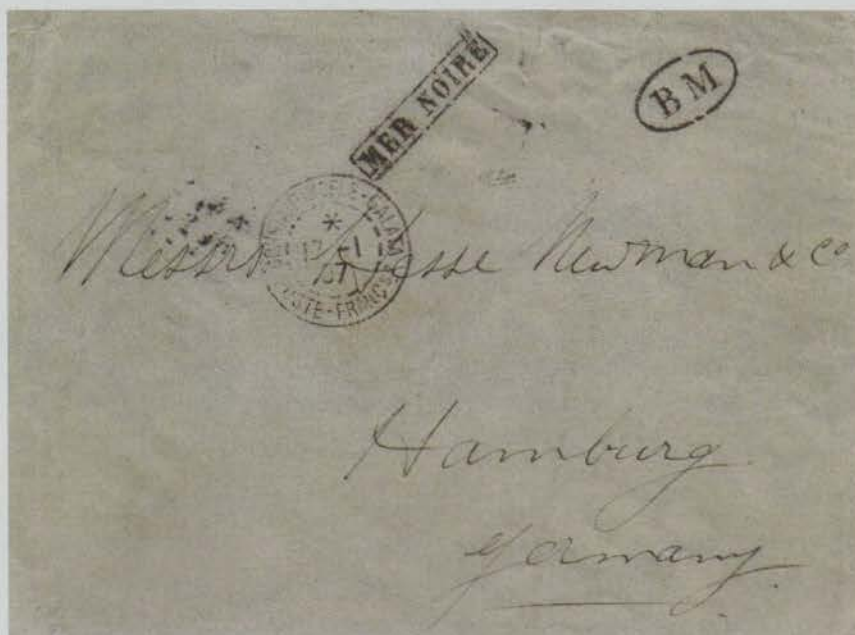 MER NOIRE
BM
GALATA
17 -1
01
POSTE-FRANÇSE
Messrs Hesse Newman & Co
Hamburg
Germany